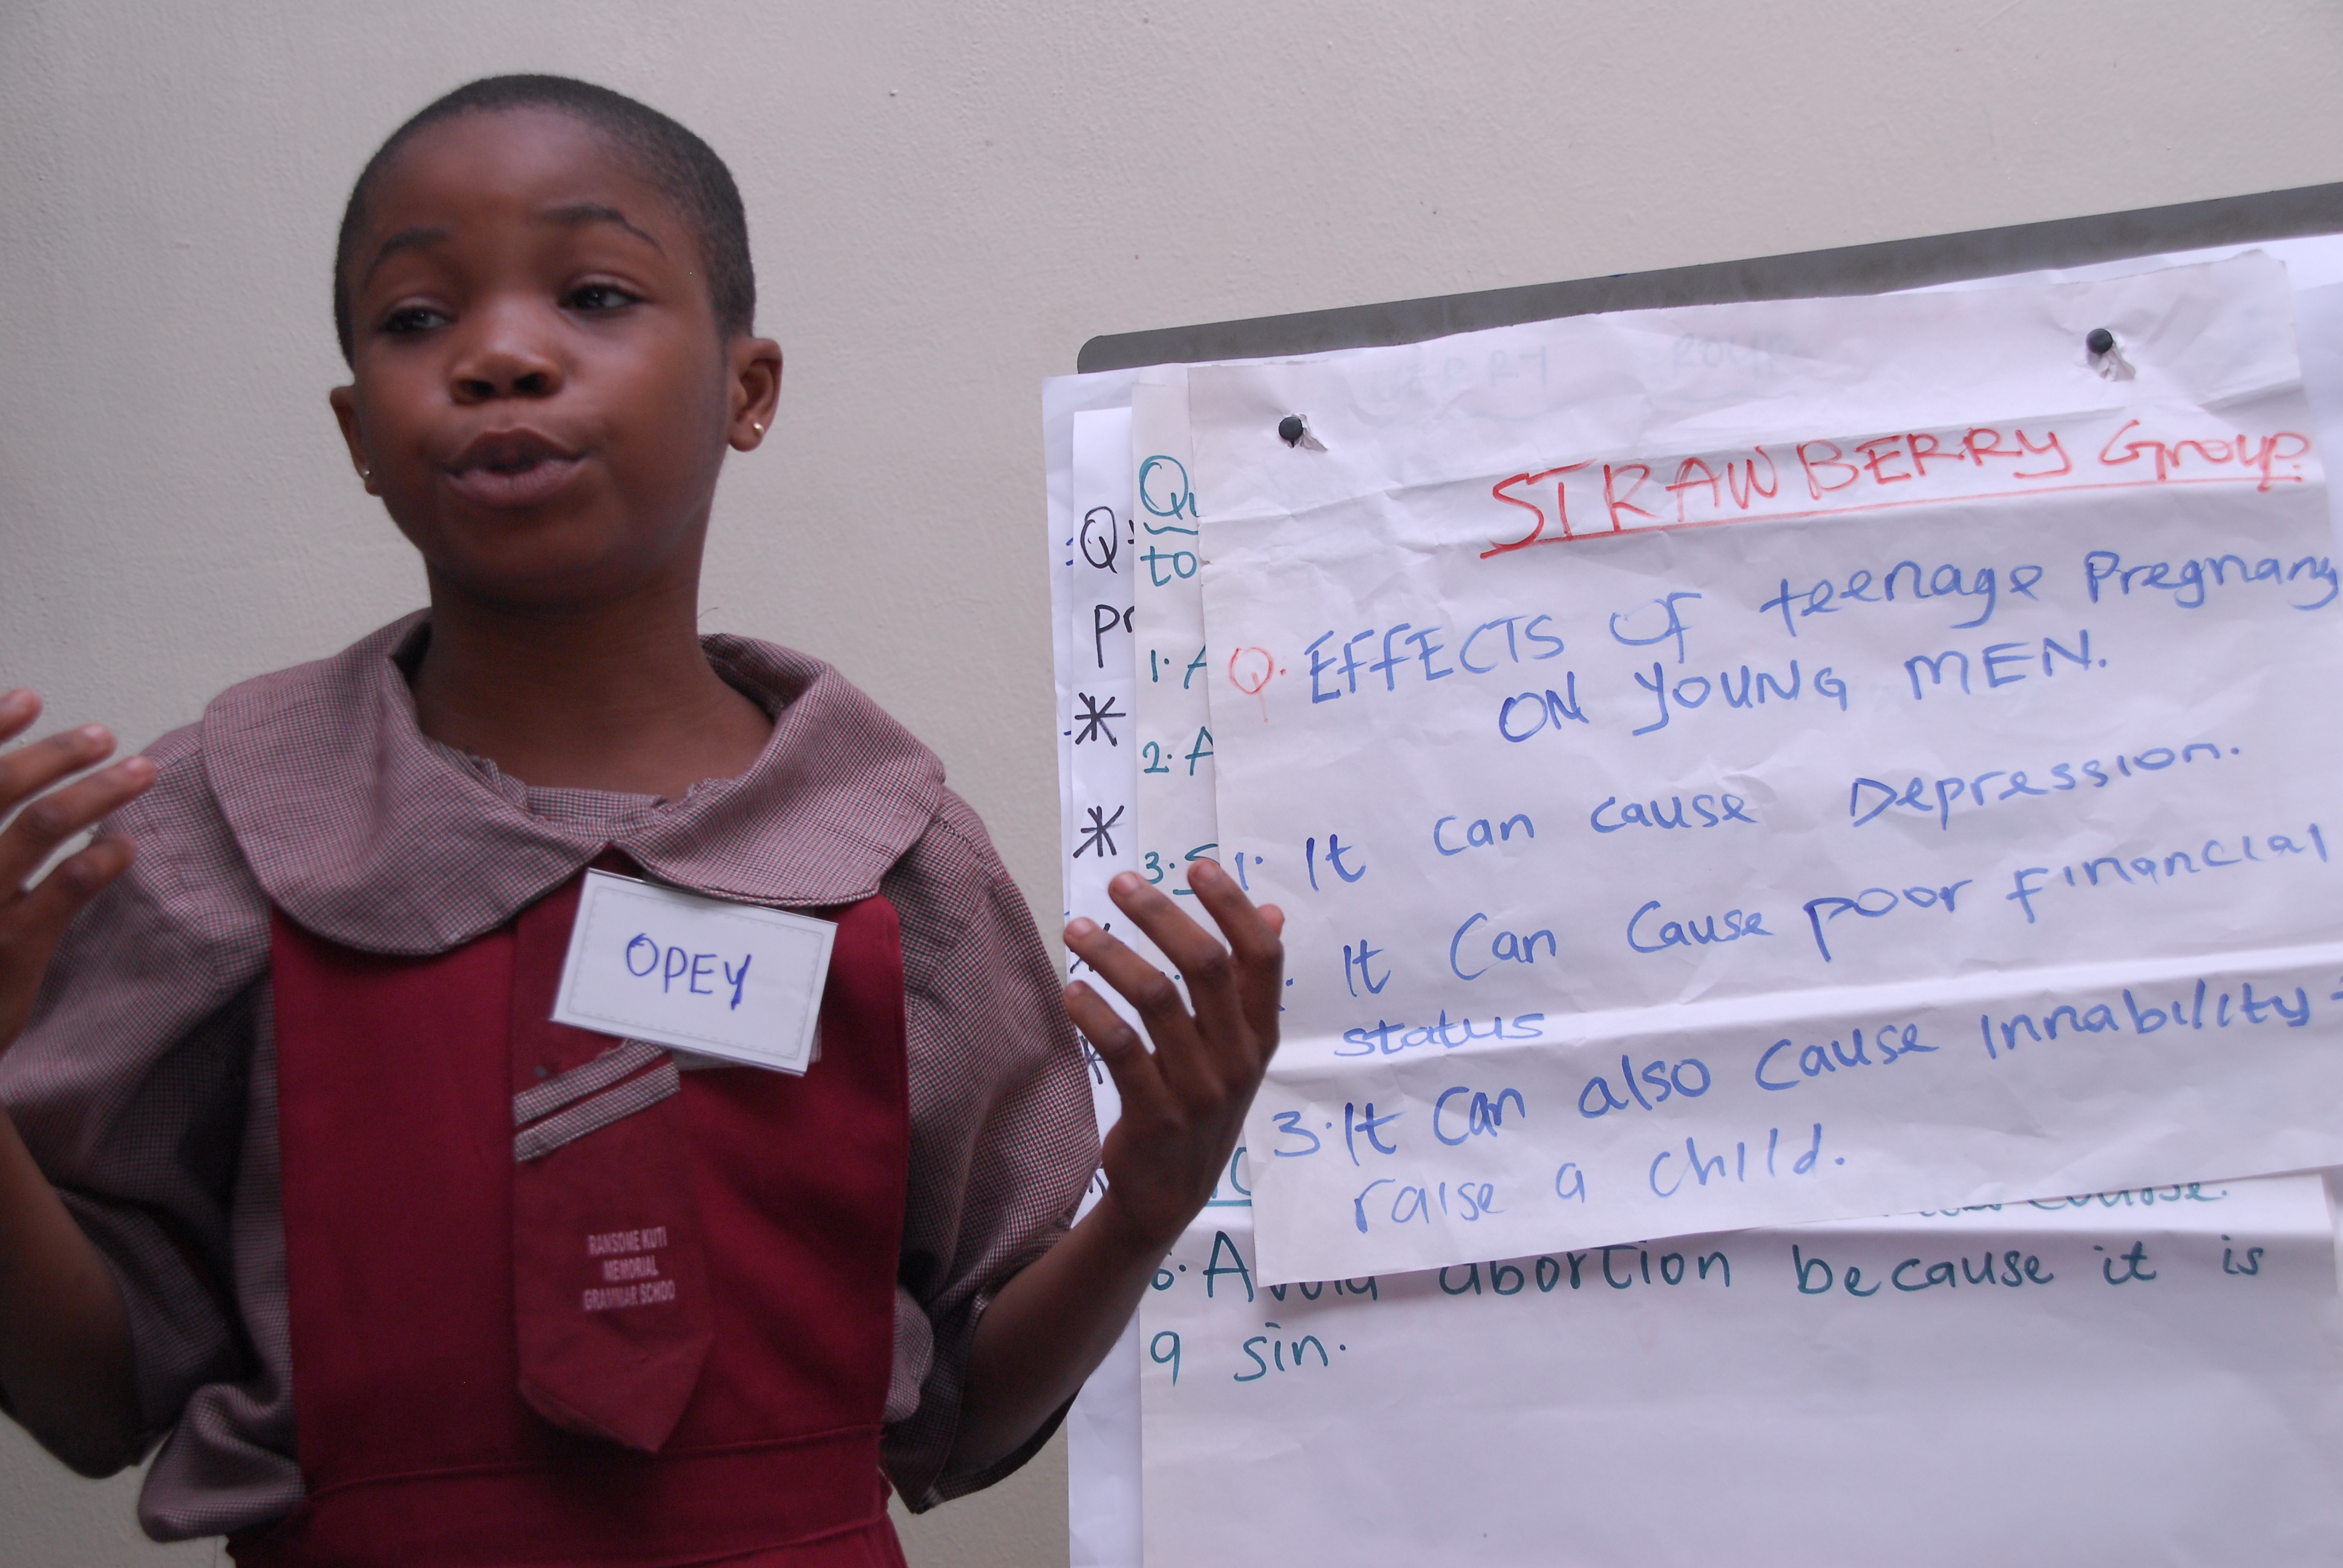 OPEY
RANSOME KUTI
MEMORIAL
GRAMMAR SCHOO
STRAWBERRY Group.
Q. EFFECTS OF teenage Pregnancy
ON YOUNG MEN.
1. It can cause Depression.
It Can Cause poor financial
status
3. It can also cause innability
raise a child.
6. Avoid abortion because it is
a sin.
Q
Pr
*
*
Qu
to
1. A
2. A
3. S